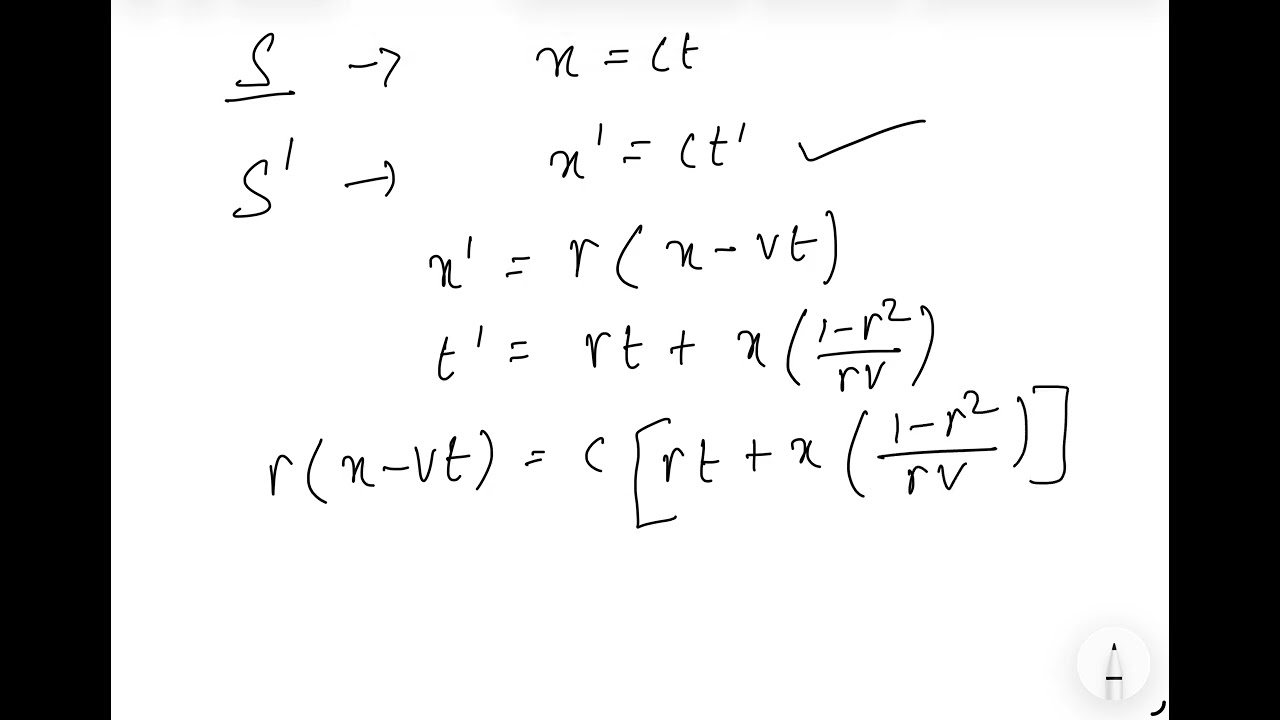 S → x = ct
S' → x' = ct' ✓
x' = r(x - vt)
t' = rt + x((1-r²)/(rv))
r(x-vt) = c[rt + x((1-r²)/(rv))]